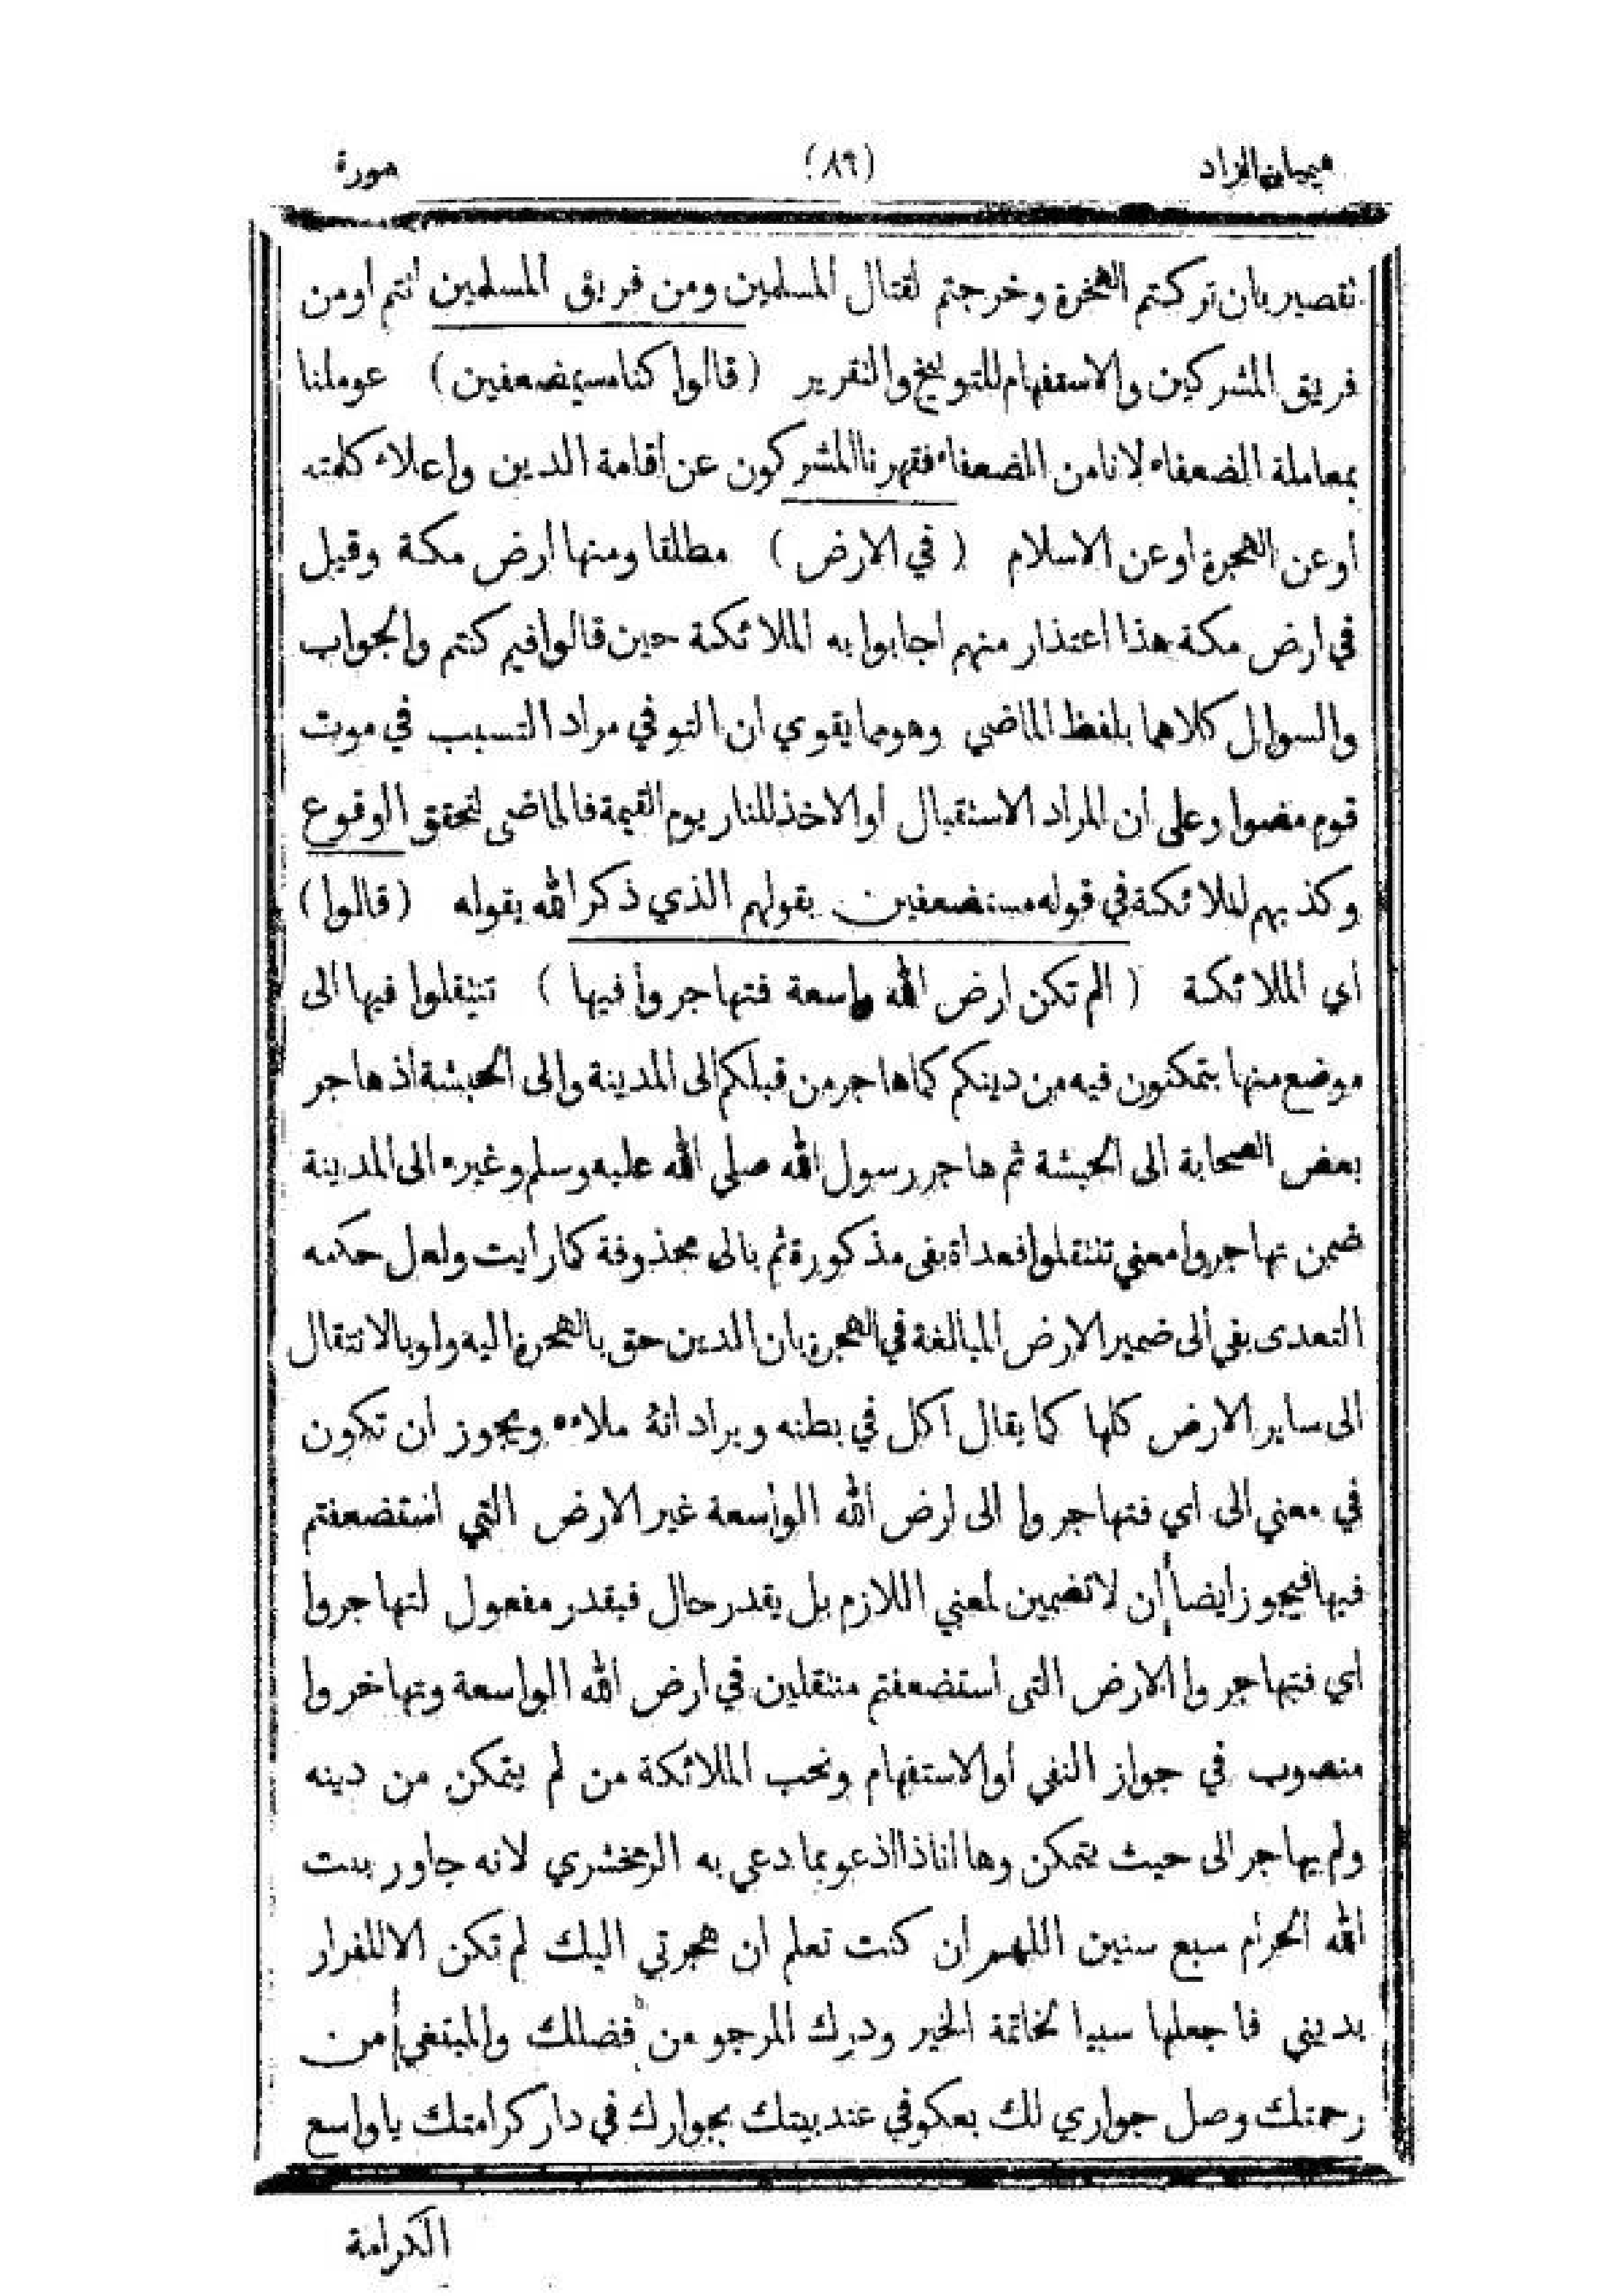 هميان الزاد (٨٩) سورة
تقصير بان تركتم الهجرة وخرجتم لقتال المسلمين ومن فريق المسلمين انتم اومن
فريق المشركين والاستفهام للتوبيخ والتقرير (قالوا كنا مستضعفين) عوملنا
بمعاملة الضعفاء لانا من الضعفاء فقهرنا المشركون عن اقامة الدين واعلاء كلمته
أوعن الهجرة اوعن الاسلام (في الارض) مطلقا ومنها ارض مكة وقيل
في ارض مكة هذا اعتذار منهم اجابوا به الملائكة حين قالوا فيم كنتم والجواب
والسوال كلاهما بلفظ الماضي وهومما يقوي ان التوفي مراد التسبب في موت
قوم مضوا وعلى أن المراد الاستقبال أو الاخذ للنار يوم القيمة فالماضى لتحقق الوقوع
وكذبهم للملائكة في قوله مستضعفين بقولهم الذي ذكر الله بقوله (قالوا)
أي الملائكة (الم تكن ارض الله واسعة فتهاجروا فيها) تنتقلوا فيها الى
موضع منها يتمكنون فيه من دينكم كما هاجر من قبلكم الى المدينة والى الحبشة اذ هاجر
بعض الصحابة الى الحبشة ثم هاجر رسول الله صلى الله عليه وسلم وغيره الى المدينة
ضمن تهاجروا معني تنتقلوا فعداه بفى مذكورة ثم بالى محذوفة كما رأيت ولعل حكمه
التعدى بفي الى ضمير الارض المبالغة في الهجرة بان الدين حق بالهجرة اليه ولو بالانتقال
الى ساير الارض كلها كما يقال اكل في بطنه ويراد انه ملاءه ويجوز ان تكون
في معني الى اي فتهاجروا الى ارض الله الواسعة غير الارض التي استضعفتم
فيها فيجوز ايضا أن لا تضمين لمعني اللازم بل يقدر حال فيقدر مفعول لتهاجروا
اي فتهاجروا الارض التى استضعفتم منتقلين في ارض الله الواسعة وتهاخروا
منصوب في جواز النفي أو الاستفهام ونحب الملائكة من لم يتمكن من دينه
ولم يهاجر الى حيث يتمكن وها انا ذا اذعو بما دعي به الزمخشري لانه جاور بيت
الله الحرام سبع سنين اللهم ان كنت تعلم ان هجرتي اليك لم تكن الا للفرار
بديني فاجعلها سببا لخاتمة الخير ودرك المرجو من فضلك والمبتغي من
رحمتك وصل جواري لك بعكوفي عند بيتك بجوارك في دار كرامتك يا واسع
الكرامة